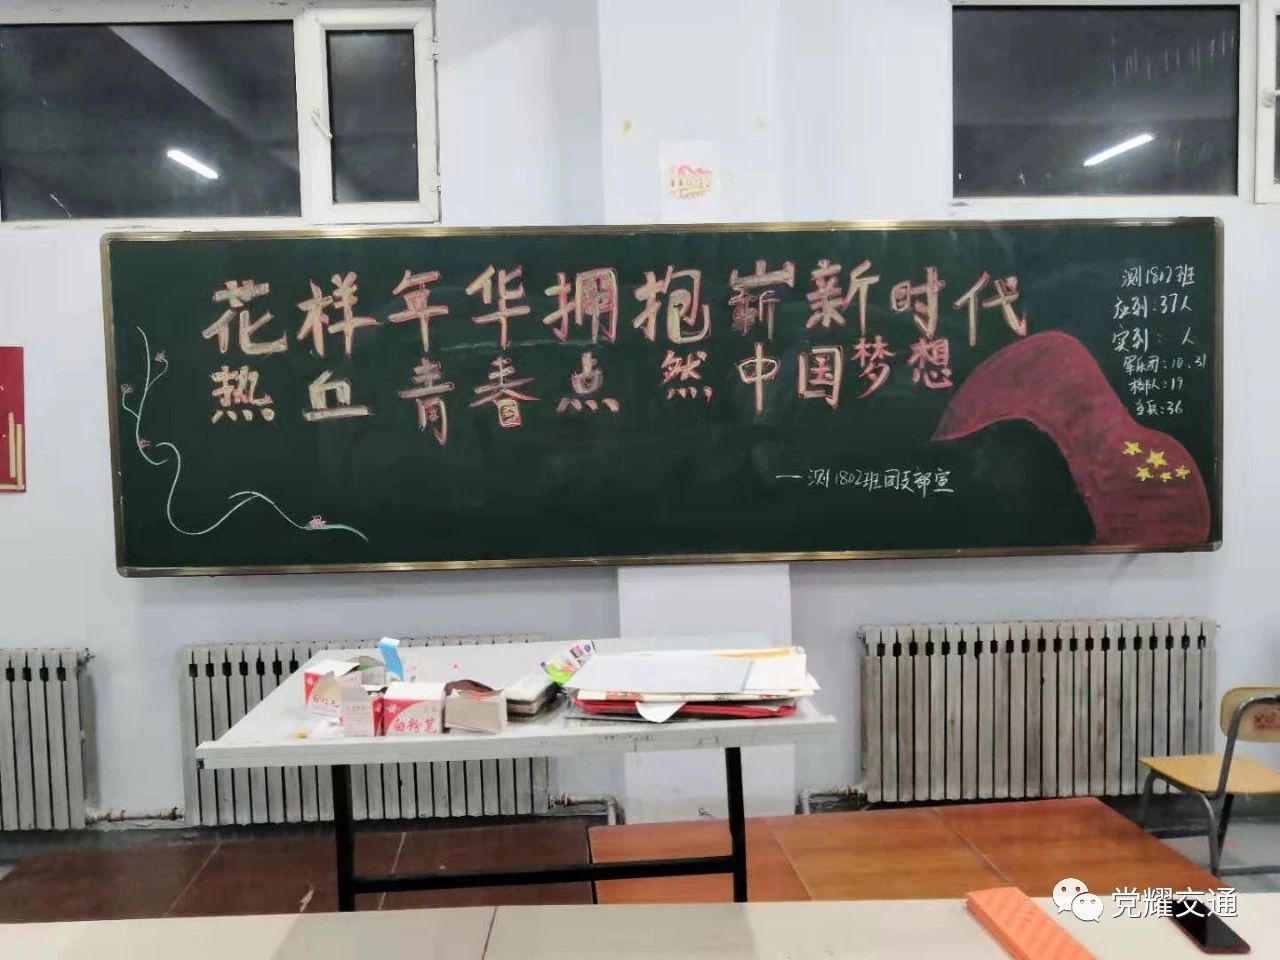 花样年华拥抱崭新时代
热血青春点然中国梦想
一测1802班团支部宣
测1802班
应到:37人
实到: 人
军乐团:10、31
校队:19
当兵:36
白粉笔
党耀交通